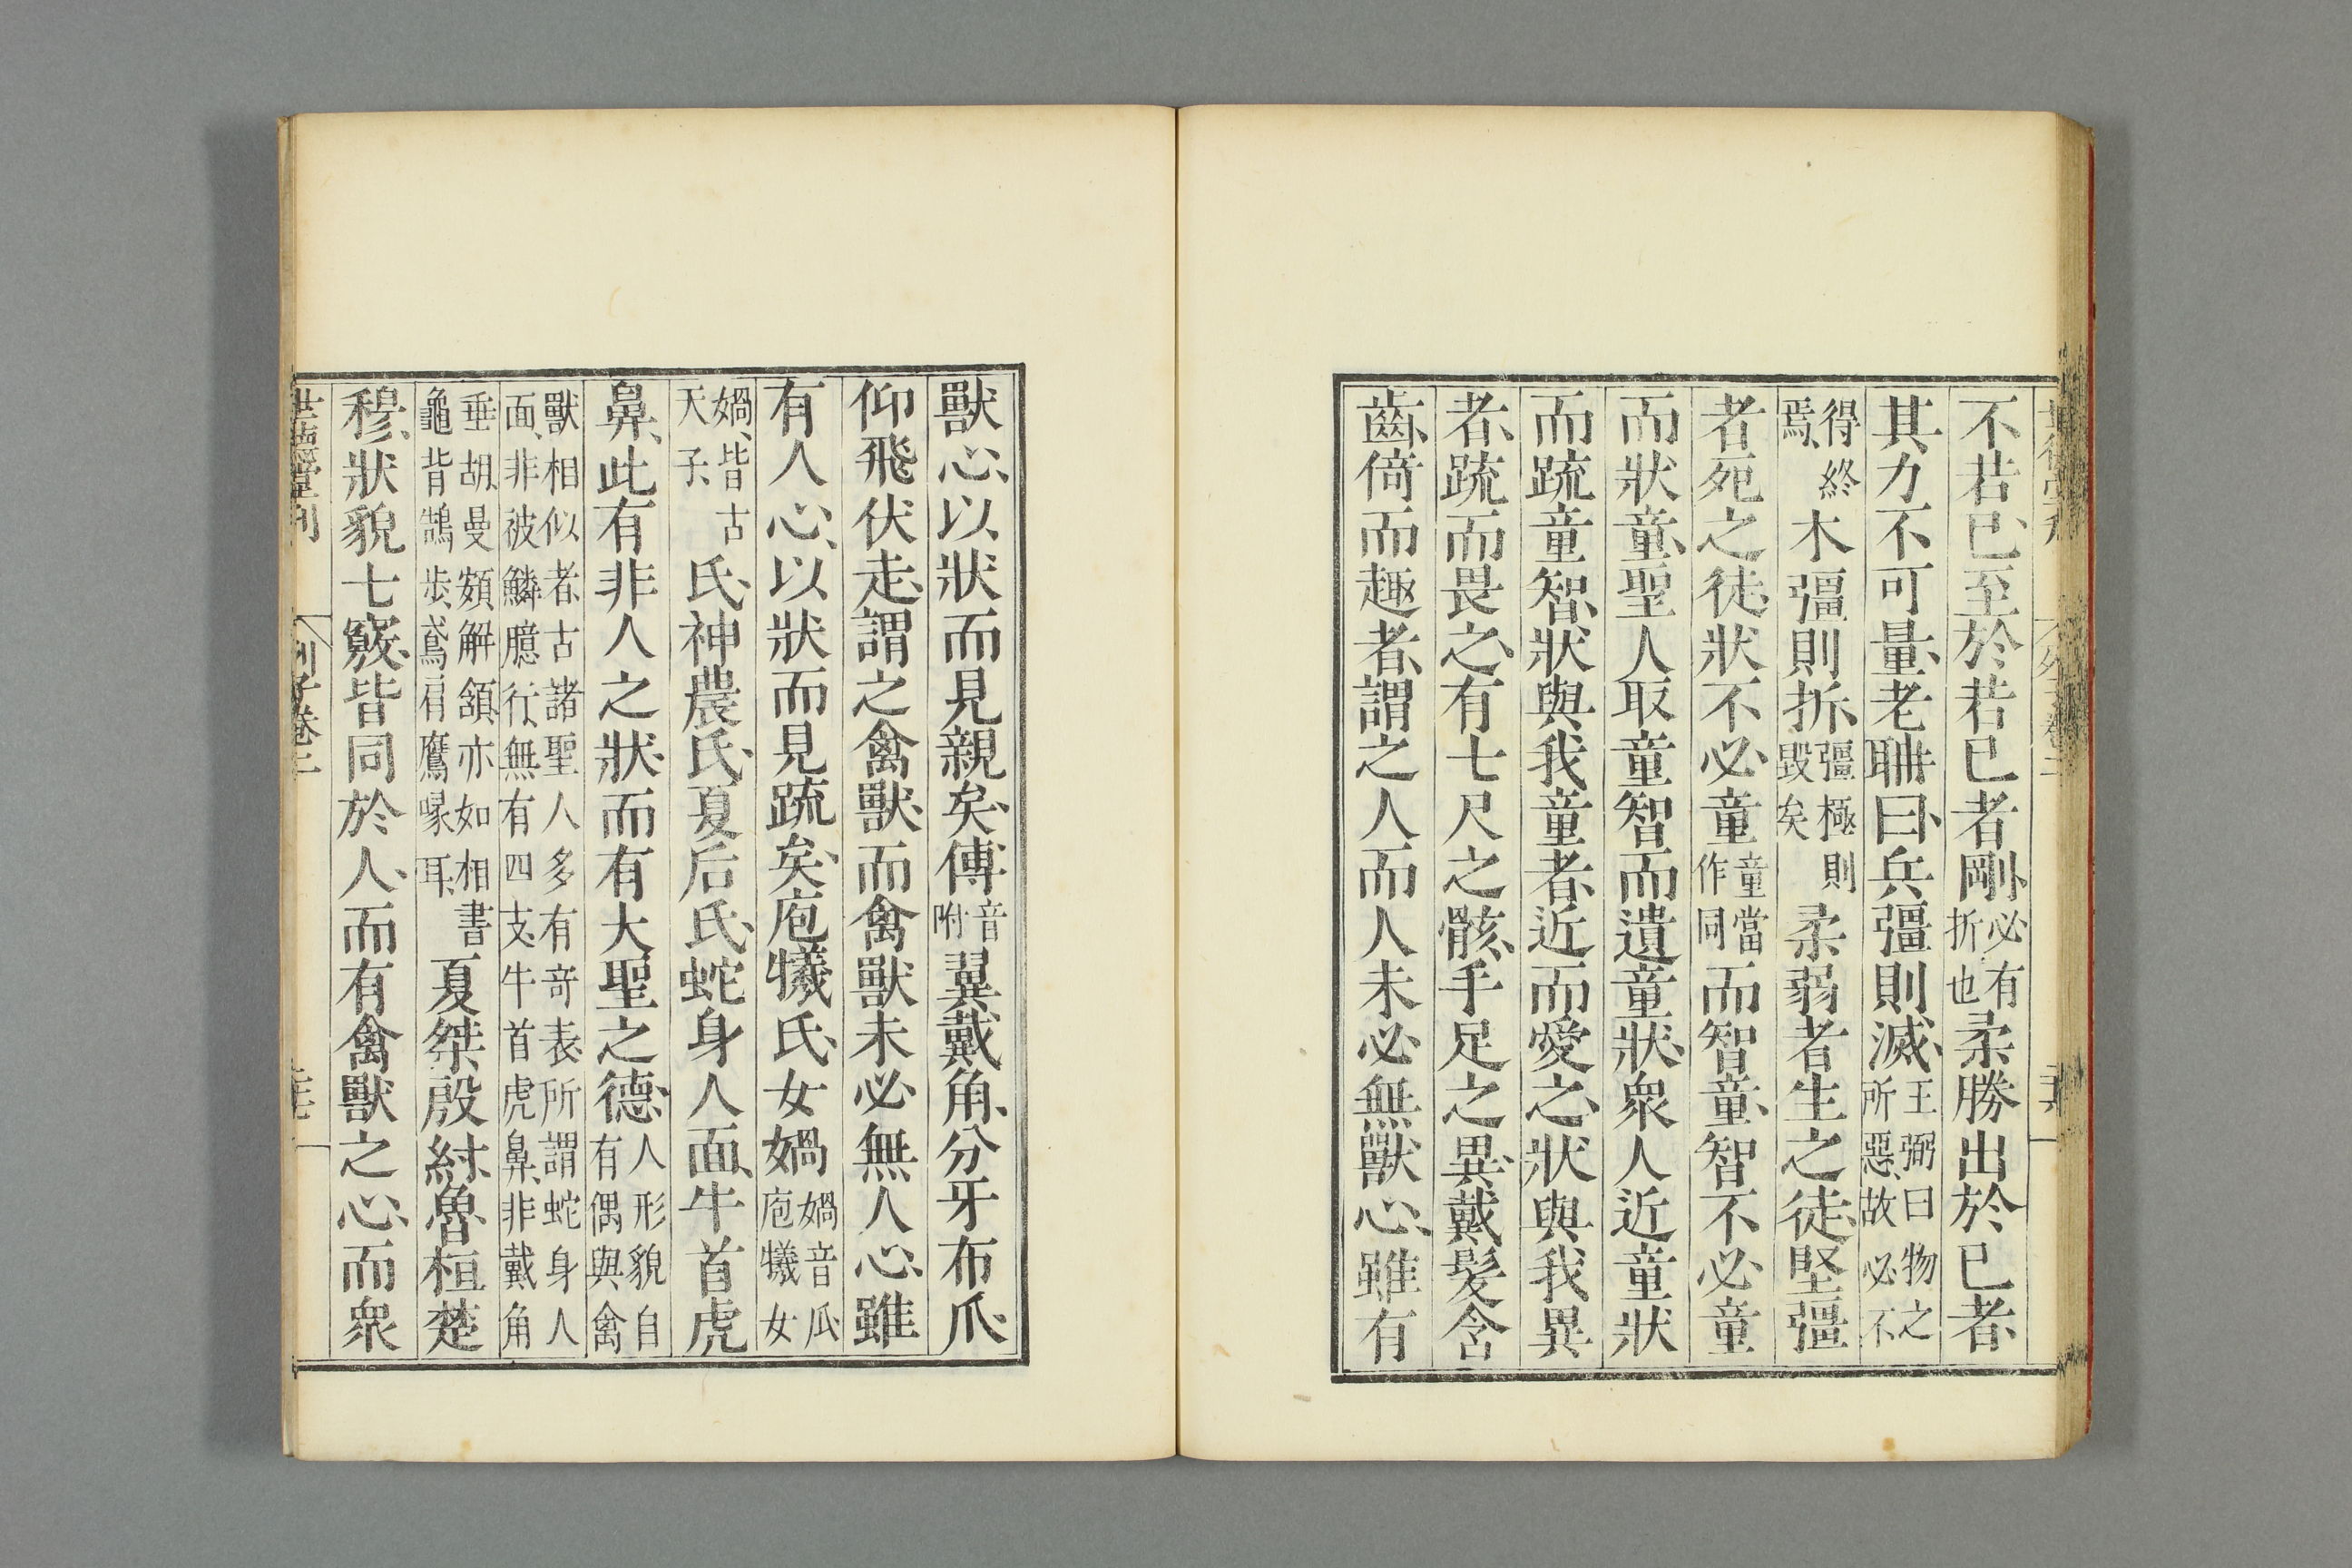 不若已至於若已者剛必有折也柔勝出於已者
其力不可量老耼曰兵彊則滅王弼曰物之所惡故必不
得終焉木彊則折彊極則毀矣柔弱者生之徒堅彊
者死之徒狀不必童童當作同而智童智不必童
而狀童聖人取童智而遺童狀衆人近童狀
而疏童智狀與我童者近而愛之狀與我異
者疏而畏之有七尺之骸手足之異戴髮含
齒倚而趣者謂之人而人未必無獸心雖有
獸心以狀而見親矣傅音附翼戴角分牙布爪
仰飛伏走謂之禽獸而禽獸未必無人心雖
有人心以狀而見疏矣庖犧氏女媧媧音瓜庖犧女
媧皆古天子氏神農氏夏后氏蛇身人面牛首虎
鼻此有非人之狀而有大聖之德人形貌自有偶與禽
獸相似者古諸聖人多有奇表所謂蛇身人面非被鱗臆行無有四支牛首虎鼻非戴角
垂胡曼頞解頷亦如相書龜背鵠步鳶肩鷹喙耳夏桀殷紂魯桓楚
穆狀貌七竅皆同於人而有禽獸之心而衆
世德堂刊
列子卷二